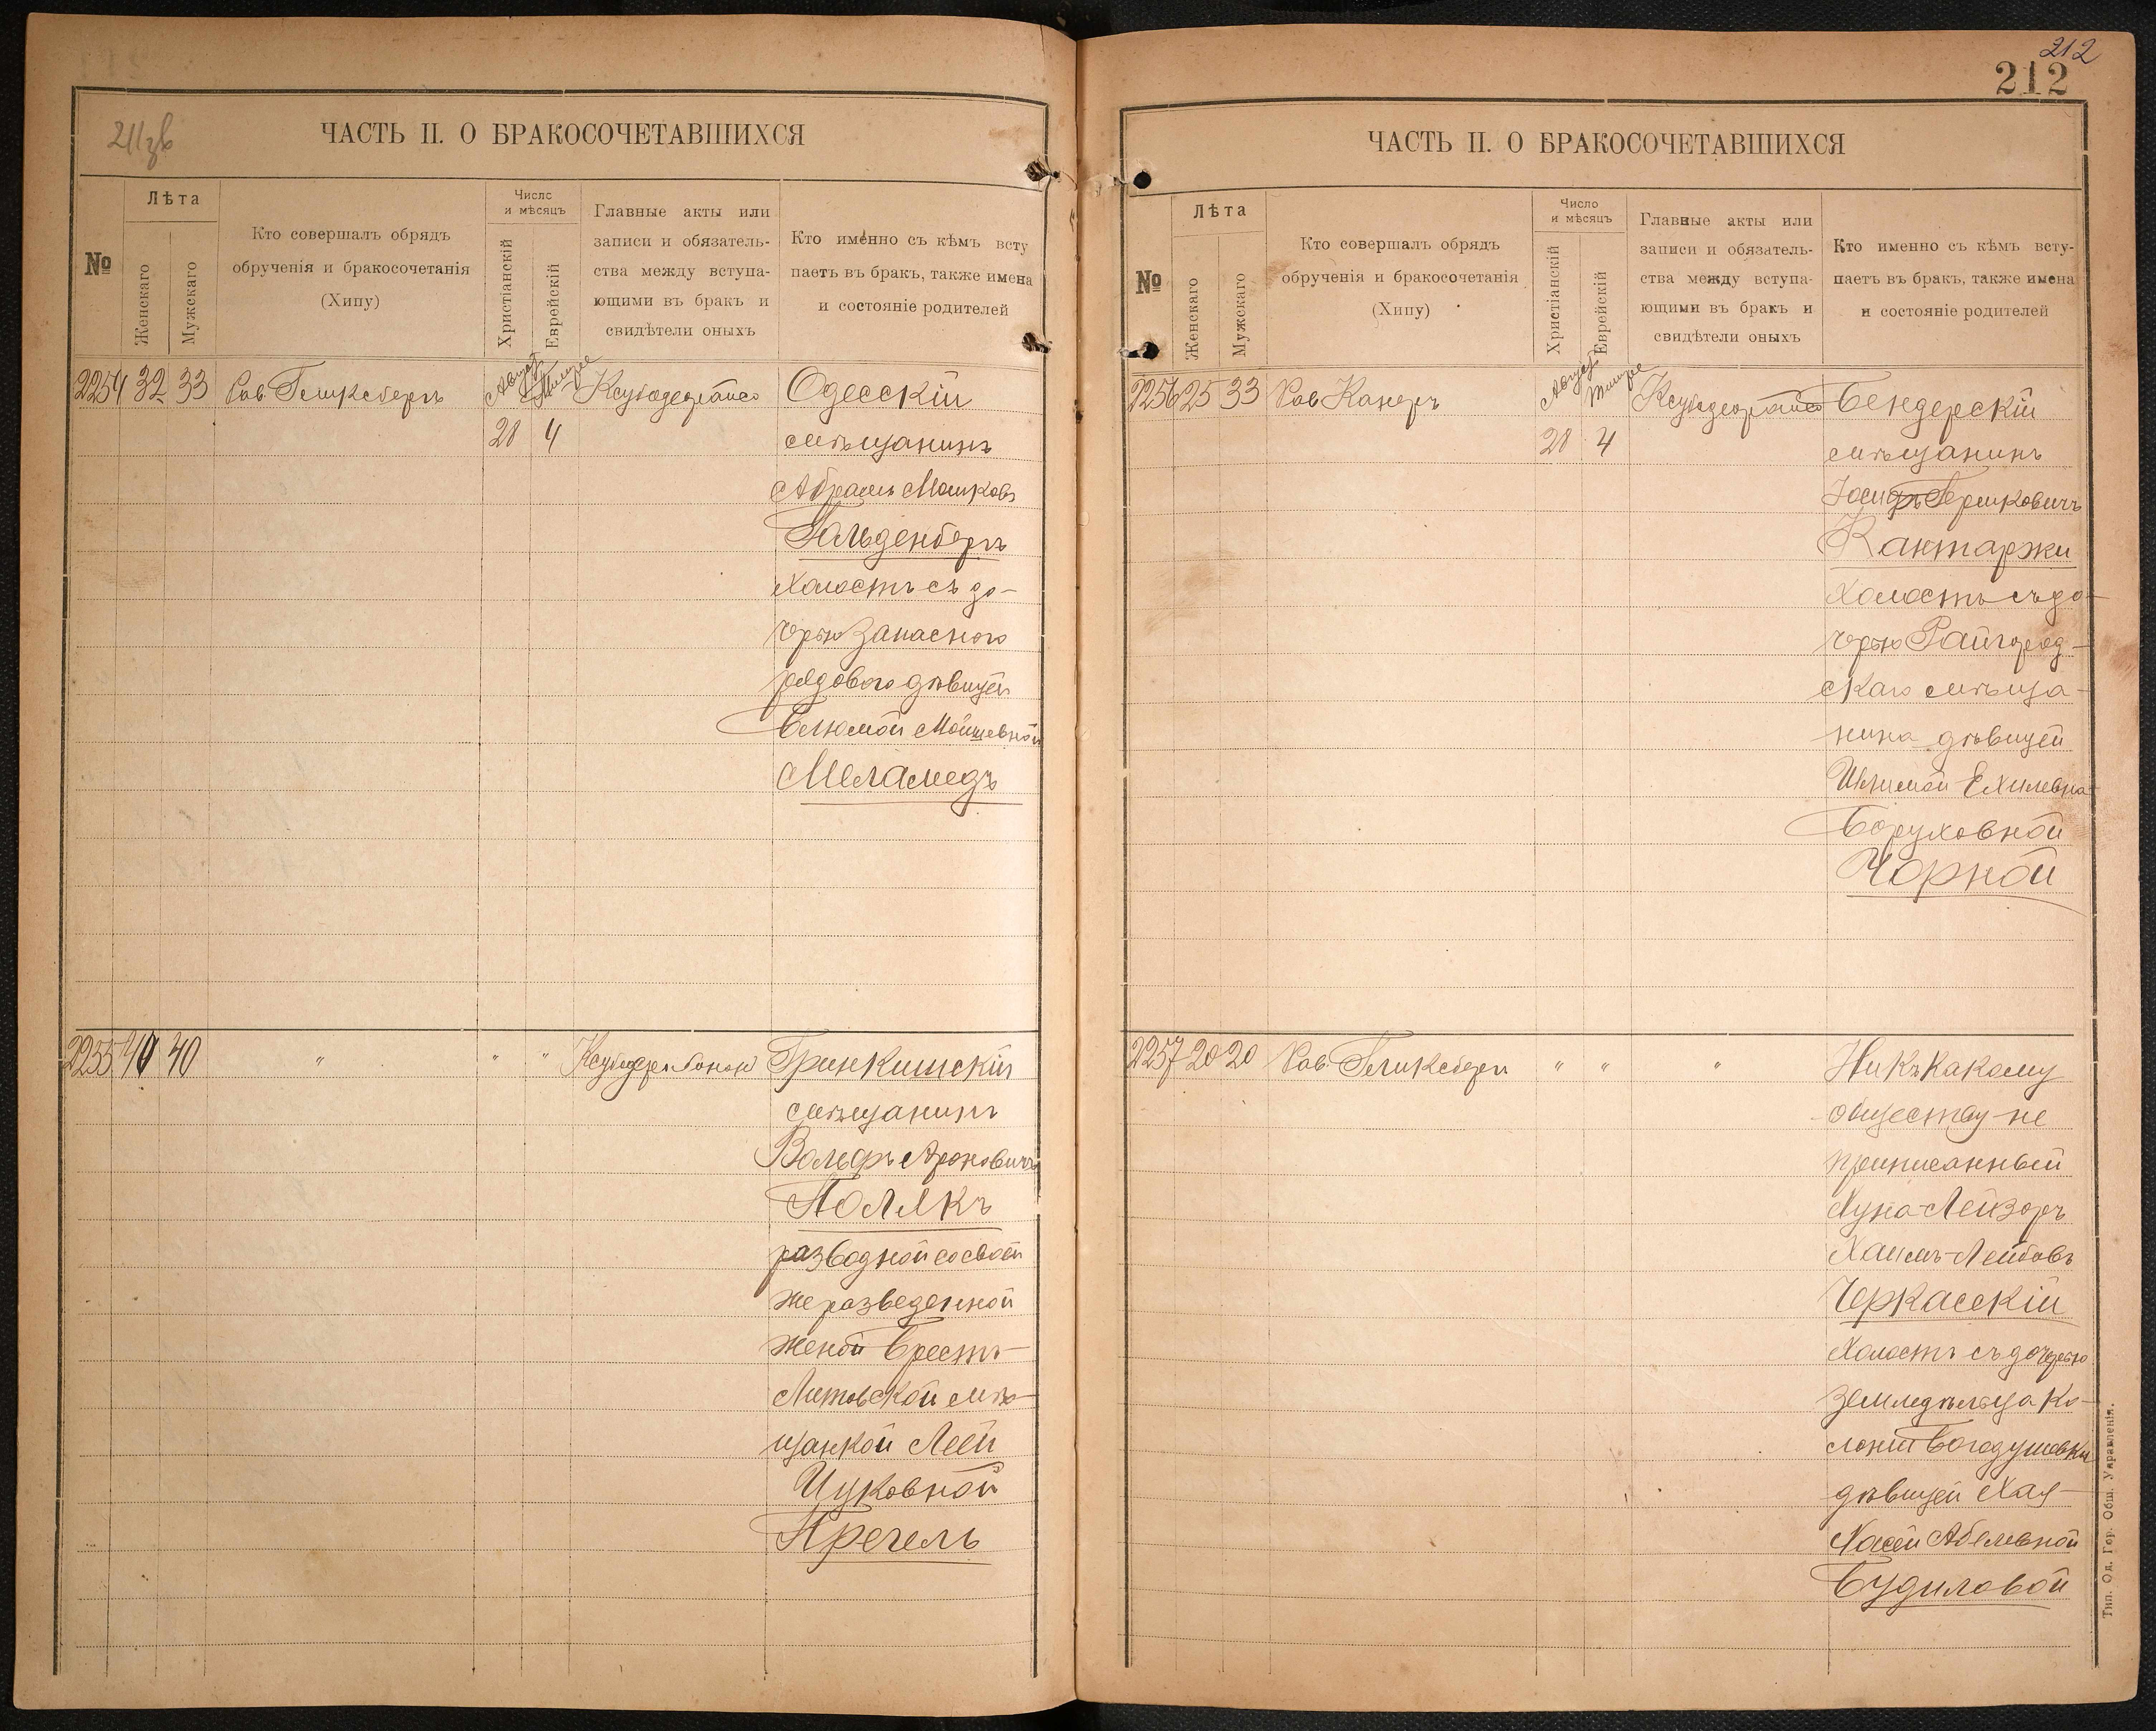 211зв
ЧАСТЬ II. О БРАКОСОЧЕТАВШИХСЯ
№
Лѣта
Женскаго
Мужскаго
Кто совершалъ обрядъ
обрученія и бракосочетанія
(Хипу)
Число
и мѣсяцъ
Христіанскій
Еврейскій
Главные акты или
записи и обязатель-
ства между вступа-
ющими въ бракъ и
свидѣтели оныхъ
Кто именно съ кѣмъ всту
паетъ въ бракъ, также имена
и состояніе родителей
2254 32 33 Рав. Гликсбергъ Август Тишре
28 4
Одесскій
мѣщанинъ
Абрамъ Мошковъ
Гольденбергъ
холостъ съ до-
черью запаснаго
рядового дѣвицей
Блюмой Мойшевной
Меламедъ
2255 40 40 " " "
Гринкишскій
мѣщанинъ
Вольфъ Ароновичъ
Полякъ
разводной со своей
же разведенной
женой Брестъ-
Литовской мѣ-
щанкой Леей
Ицковной
Пречель
212
212
ЧАСТЬ II. О БРАКОСОЧЕТАВШИХСЯ
№
Лѣта
Женскаго
Мужскаго
Кто совершалъ обрядъ
обрученія и бракосочетанія
(Хипу)
Число
и мѣсяцъ
Христіанскій
Еврейскій
Главные акты или
записи и обязатель-
ства между вступа-
ющими въ бракъ и
свидѣтели оныхъ
Кто именно съ кѣмъ всту-
паетъ въ бракъ, также имена
и состояніе родителей
2256 25 33 Рав Канеръ Август Тишре
28 4
Бендерскій
мѣщанинъ
Іосифъ Берковичъ
Кантаржи
холостъ съ до-
черью Райгород-
скаго мѣща-
нина дѣвицей
Ехилевна-
Боруховной
Чорной
2257 20 20 Рав. Гликсбергъ " " "
Ни къ какому
обществу не
приписанный
Нуна-Лейзоръ
Хаимъ-Лейбовъ
Черкасскій
холостъ съ дочерью
земледѣльца ко-
лоніи Богодушевки
дѣвицей Хая-
Хасей Абелевной
Будиловой
Тип. Од. Гор. Общ. Управленія.